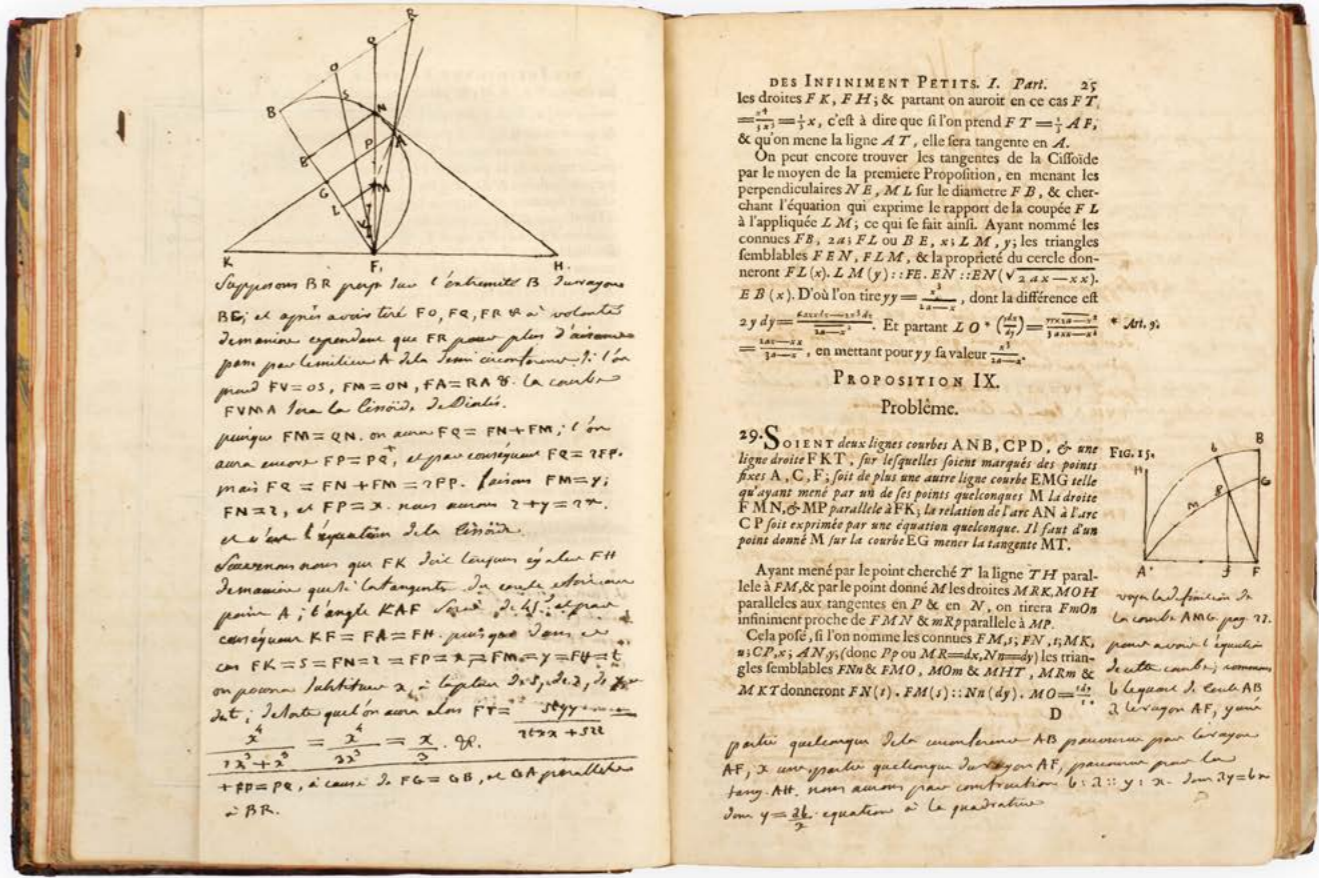 R
Q
O
B
S
N
E
P
A
G
M
L
V
K
F.
H.
Supposons BR perp. sur l'extremité B du rayon
BF; et après avoir tiré FO, FQ, FR &c à volonté
de maniere cependant que FR pour plus d'aisance
passe par le milieu A de la demi circonference. Si l'on
prend FV = OS, FM = QN, FA = RA &c. la courbe
FVMA sera la Cissoïde de Dioclés.
puisque FM = QN. on aura FQ = FN + FM; l'on
aura encore FP = PQ+, et par consequent FQ = 2FP.
mais FQ = FN + FM = 2FP. faisons FM = y;
FN = z, et FP = x. nous aurons z + y = 2x.
et c'est l'équation de la Cissoïde.
Souvenons nous que FK doit toujours égaler FH
de maniere que si la tangente du cercle etoit au
point A; l'angle KAF seroit de 45.d et par
consequent KF = FA = FH. puisque dans ce
cas FK = s = FN = z = FP = x = FM = y = FH = t
on pourra substituer x à la place de s, de z, de y et
de t; de sorte que l'on aura alors FT = 2tyy / 2txx + szz
x⁴ / 2x³ + x³ = x⁴ / 3x³ = x / 3. &c.
+ FP = PQ, à cause de FG = GB, et GA parallele
à BR.
DES INFINIMENT PETITS. I. Part. 25
les droites FK, FH; & partant on auroit en ce cas FT
= x⁴/3x³ = ⅓x, c'est à dire que si l'on prend FT = ⅓ AF,
& qu'on mene la ligne AT, elle sera tangente en A.
On peut encore trouver les tangentes de la Cissoïde
par le moyen de la premiere Proposition, en menant les
perpendiculaires NE, ML sur le diametre FB, & cher-
chant l'équation qui exprime le rapport de la coupée FL
à l'appliquée LM; ce qui se fait ainsi. Ayant nommé les
connues FB, 2a; FL ou BE, x; LM, y; les triangles
semblables FEN, FLM, & la proprieté du cercle don-
neront FL (x). LM (y) :: FE. EN :: EN (√2ax—xx).
EB (x). D'où l'on tire yy = x³/2a—x, dont la différence est
2y dy = 6axxdx—2x³dx/2a—x². Et partant LO* (ydx/dy) = yy×2a—x²/3axx—x³ * Art. 9.
= 2ax—xx/3a—x, en mettant pour yy sa valeur x³/2a—x.
PROPOSITION IX.
Problême.
29. SOIENT deux lignes courbes ANB, CPD, & une
ligne droite FKT, sur lesquelles soient marqués des points
fixes A, C, F; soit de plus une autre ligne courbe EMG telle
qu'ayant mené par un de ses points quelconques M la droite
FMN, & MP parallele à FK; la relation de l'arc AN à l'arc
CP soit exprimée par une équation quelconque. Il faut d'un
point donné M sur la courbe EG mener la tangente MT.
Ayant mené par le point cherché T la ligne TH paral-
lele à FM, & par le point donné M les droites MRK, MOH
paralleles aux tangentes en P & en N, on tirera FmOn
infiniment proche de FMN & mRp parallele à MP.
Cela posé, si l'on nomme les connues FM, s; FN, t; MK,
u; CP, x; AN, y; (donc Pp ou MR=dx, Nn=dy) les trian-
gles semblables FNn & FMO, MOm & MHT, MRm &
MKT donneront FN (t). FM (s) :: Nn (dy). MO = sdy/t.
D
FIG. 15.
B
b
H
G
M
A
f
F
voyez la definition de
la courbe AMG. pag. 22.
pour avoir l'équation
de cette courbe; nommons
b le quart de cercle AB
a le rayon AF, y une
partie quelconque de la circonference AB parcourue par le rayon
AF, x une partie quelconque du rayon AF, parcourue par la
tang. AH. nous aurons par construction b : a :: y : x. donc ay = bx